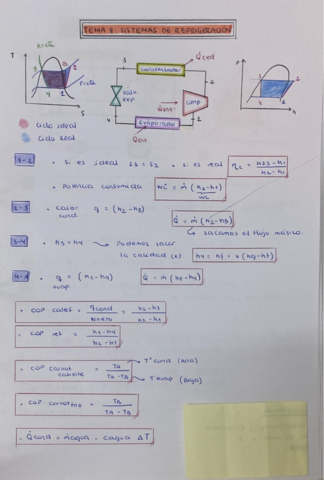 TEMA 8: SISTEMAS DE REFRIGERACIÓN
T
P
Q̇ced
3
Condensador
2
Valv. exp
Comp
4
Evaporador
1
S
Ciclo ideal
Ciclo real
1-2
• Si es ideal S1 = S2 • Si es real ηc = h2s - h1 / h2 - h1
• Potencia consumida Ẇc = ṁ (h2 - h1) / ηc
2-3 • calor cond. q = (h2 - h3) Q̇ = ṁ (h2 - h3)
↳ sacamos el flujo másico.
3-4 • h3 = h4 → Podemos sacar la calidad (x) h4 = hf + x (hg - hf)
4-1 • q evap = (h1 - h4) Q̇ = ṁ (h1 - h4)
• COP calef = qcond / wneto = h2 - h3 / h2 - h1
• COP ref = h1 - h4 / h2 - h1
• COP carnot = TA / TA - TB → Tª cond (Alta)
→ T evap (Baja)
• COP carnot = TB / TA - TB
• Q̇cond = ṁagua · cagua ΔT